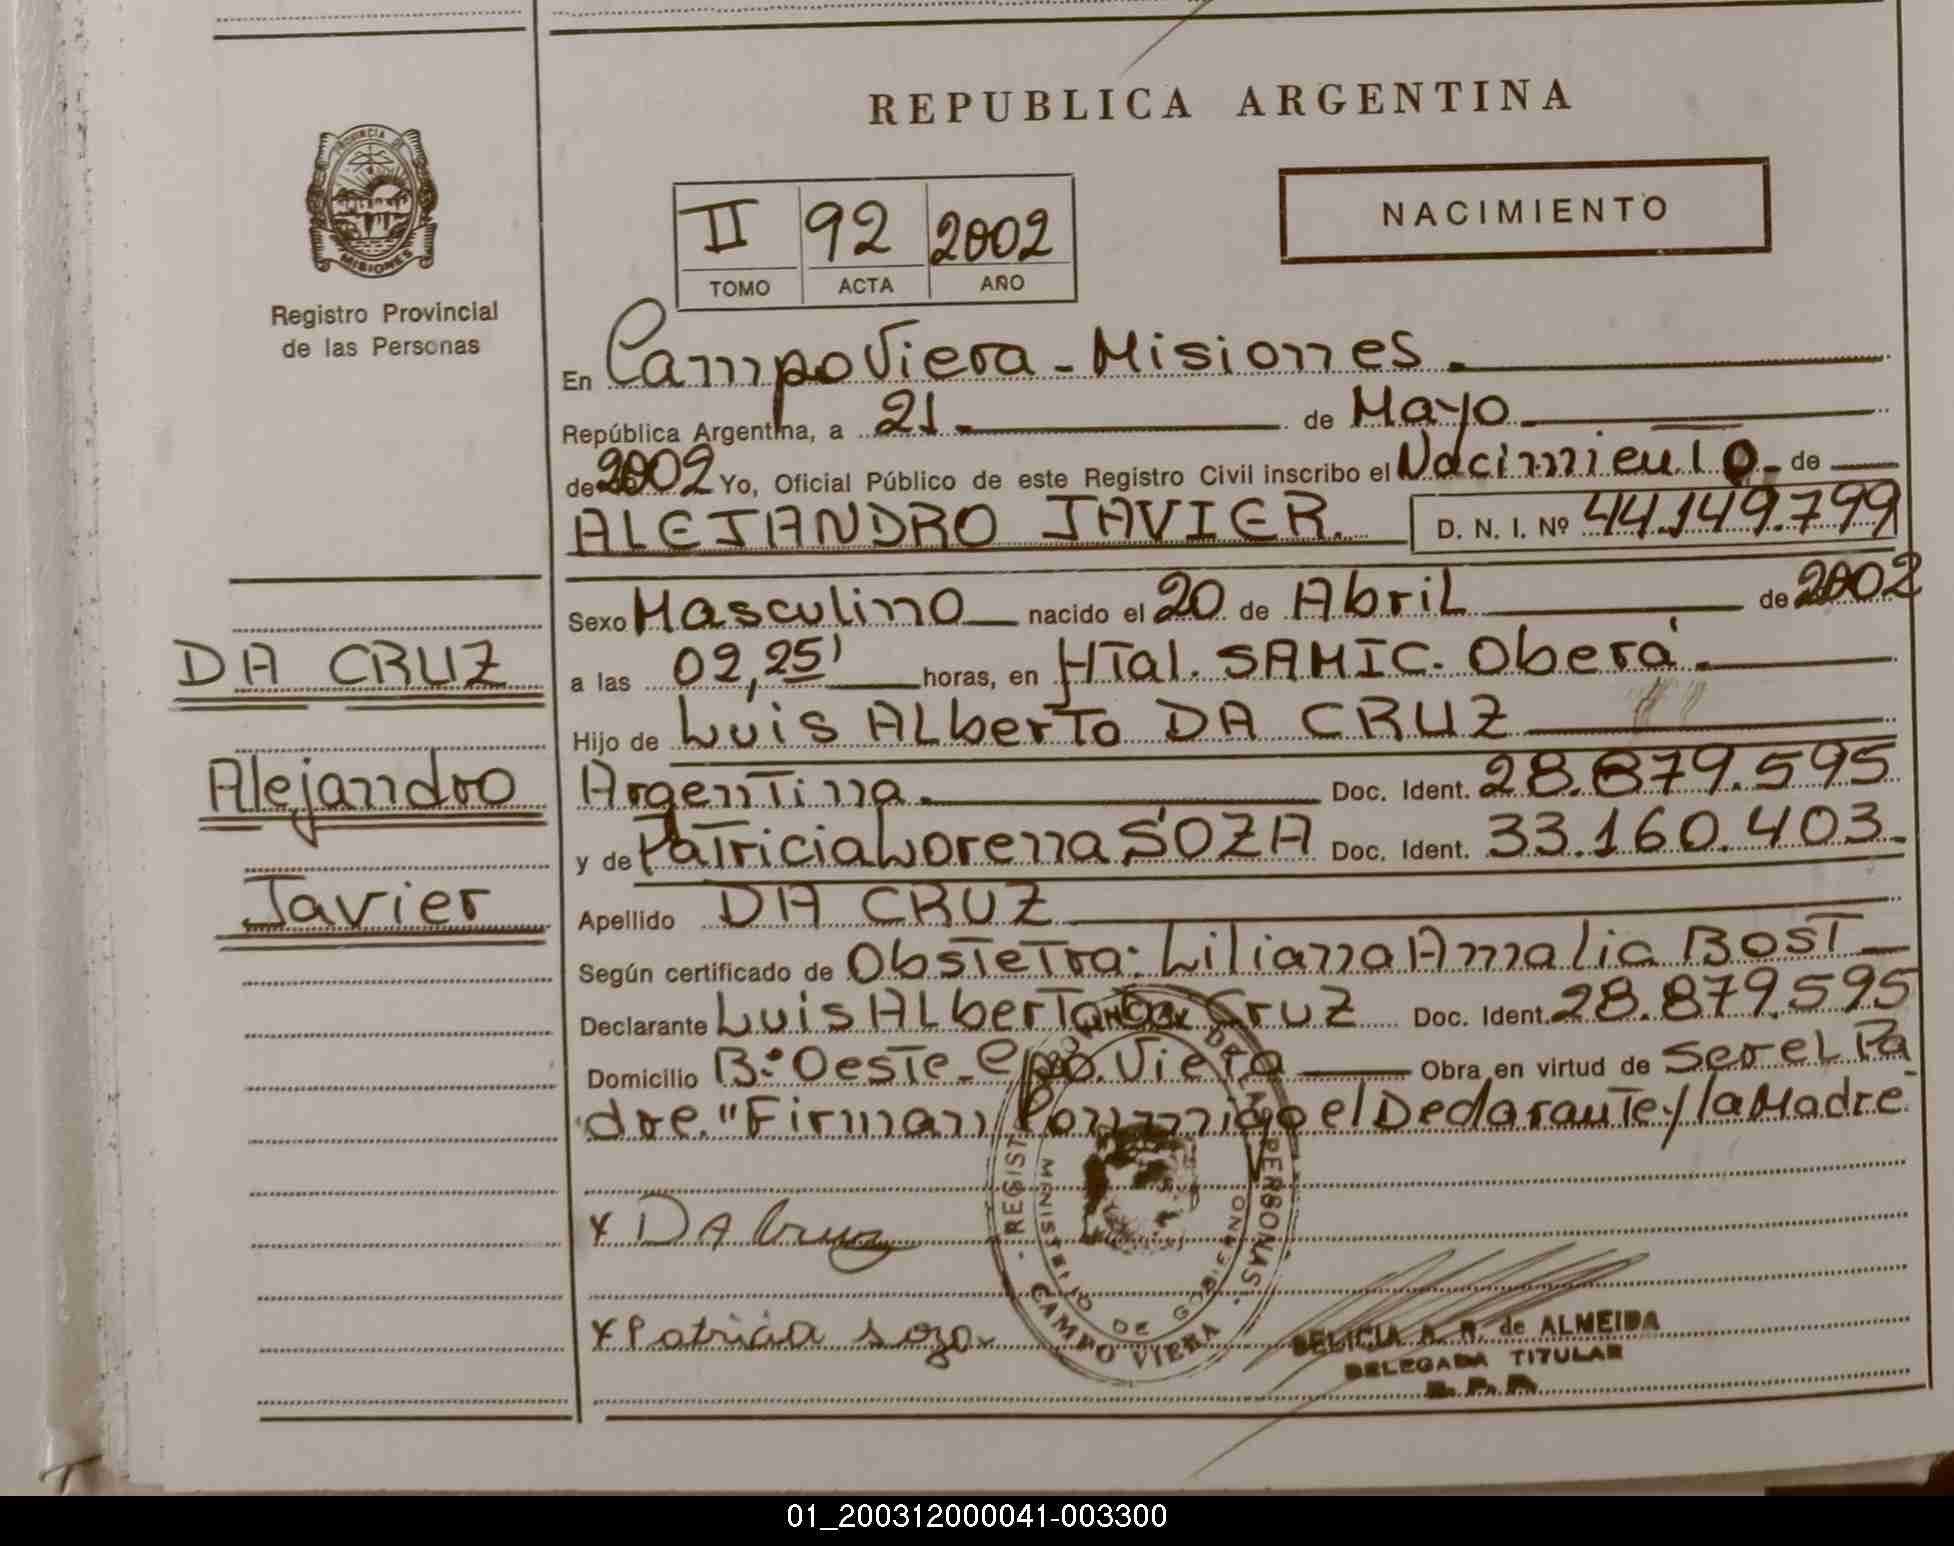 REPUBLICA ARGENTINA
PROVINCIA DE
MISIONES
Registro Provincial
de las Personas
II 92 2002
TOMO ACTA AÑO
NACIMIENTO
En Campo Viera - Misiones.
República Argentina, a 21. de Mayo
de 2002 Yo, Oficial Público de este Registro Civil inscribo el Nacimiento de
ALEJANDRO JAVIER. D. N. I. Nº 44.149.799
Sexo Masculino nacido el 20 de Abril de 2002
a las 02,25' horas, en HTal. SAMIC. Oberá.
Hijo de Luis ALberto DA CRUZ
Argentina. Doc. Ident. 28.879.595
y de Patricia Lorena SOZA Doc. Ident. 33.160.403.
Apellido DA CRUZ
Según certificado de Obstetra: Liliana Amalia BOST
Declarante Luis ALberto Da Cruz Doc. Ident. 28.879.595
Domicilio Bº Oeste - Cpo. Viera Obra en virtud de ser el Pa
dre. "Firman Conmigo el Declarante y la Madre
DA CRUZ
Alejandro
Javier
x DA Cruz
x Patricia soza
PERSONAS
MINISTERIO DE GOBIERNO
CAMPO VIERA
DELICIA A. R. de ALMEIDA
DELEGADA TITULAR
R. P. P.
01_200312000041-003300